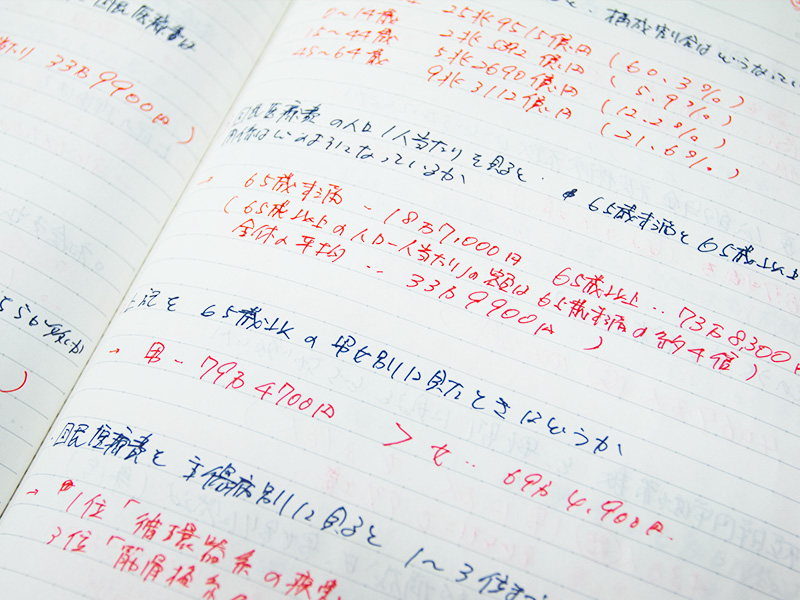 国民医療費は
33万9900円)
、構成割合はどうなってい
25兆9515億円 (60.3%)
0〜14歳 2兆5392億円 (5.9%)
15〜44歳 5兆2690億円 (12.2%)
45〜64歳 9兆3112億円 (21.6%)
国民医療費の人口1人当たりを見ると、65歳未満と65歳以上
になっているか
→ 65歳未満 - 18万7,000円 65歳以上‥73万8,300円
(65歳以上の人口一人当たりの実額は65歳未満の約4倍)
全体の平均‥33万9900円)
上記を65歳以上の男女別に見たときはどうか
→ 男 - 79万4700円 > 女‥69万4,900円
国民医療費を主傷病別に見ると1〜3位ま
→ 1位「循環器系の疾患
3位「筋骨格系の